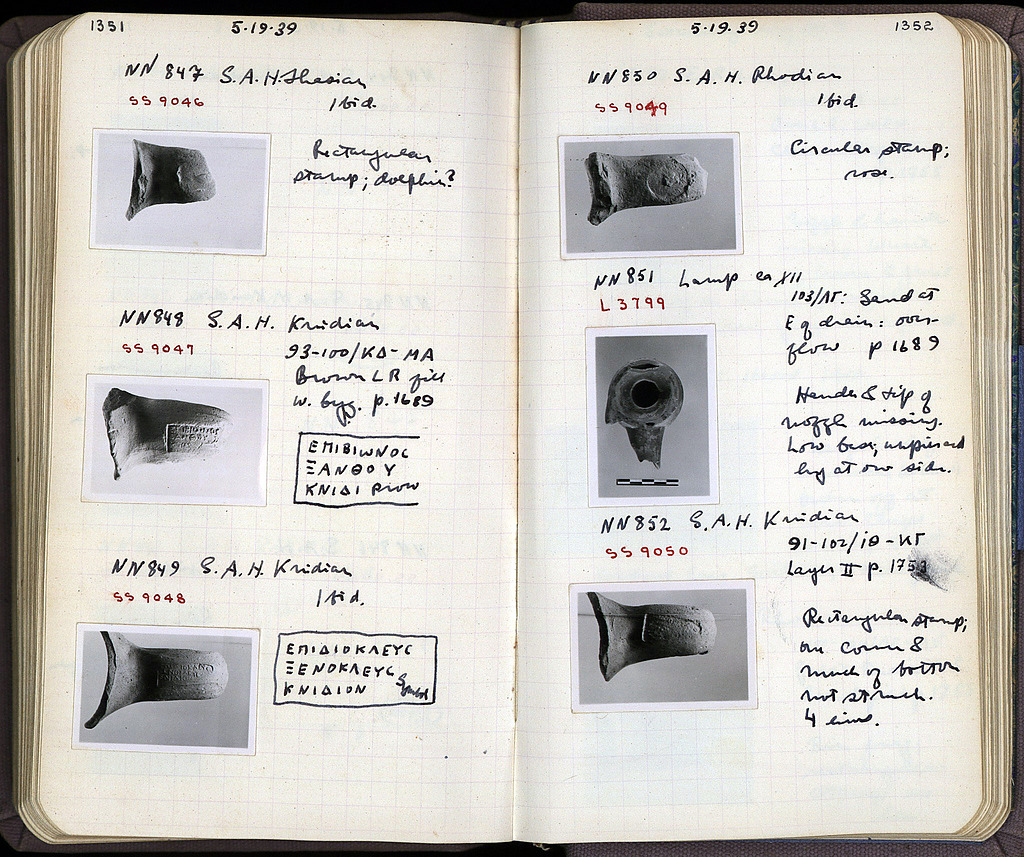 1351
5-19-39
NN 847 S.A.H. Thasian
SS 9046
Ibid.
Rectangular
stamp; dolphin?
NN848 S.A.H. Knidian
SS 9047
93-100/ΚΔ-ΜΑ
Brown LR fill
w. byz. p.1689
ΕΠΙΒΙΩΝΟC
ΞΑΝΘΟΥ
ΚΝΙΔΙ
NN849 S.A.H. Knidian
SS 9048
Ibid.
ΕΠΙΔΙΟΚΛΕΥC
ΞΕΝΟΚΛΕΥC
ΚΝΙΔΙΟΝ Symbol
5-19-39
1352
NN850 S.A.H. Rhodian
SS 9049
Ibid.
Circular stamp;
rose.
NN851 Lamp ca XII
L 3799
103/ΛΓ: Sand at
E of drain: over-
flow p 1689
Handle & tip of
nozzle missing.
Low base; unpierced
lug at one side.
NN852 S.A.H. Knidian
SS 9050
91-102/ΙΘ-ΚΓ
Layer II p. 1753
Rectangular stamp;
one corner &
much of bottom
not struck.
4 lines.